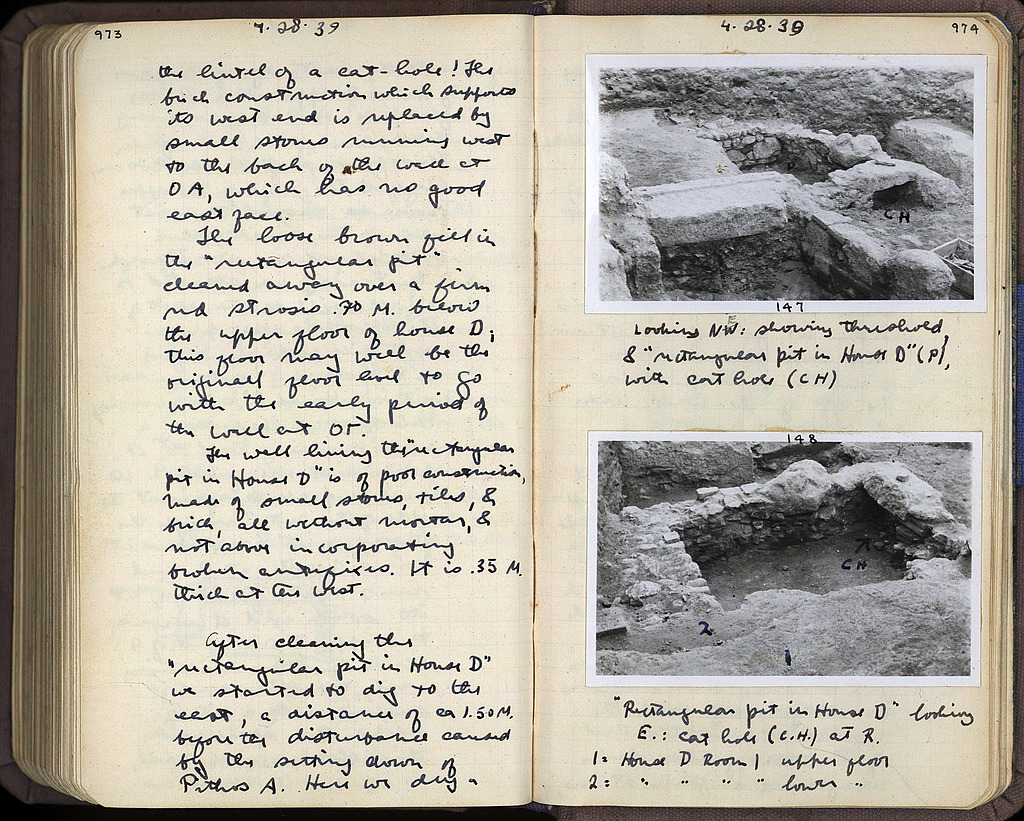 973
4.28.39
the lintel of a cat-hole! The
brick construction which supports
its west end is replaced by
small stones running west
to the back of the wall at
OA, which has no good
east face.
The loose brown fill in
the "rectangular pit"
cleaned away over a firm
red strosis .70 M. below
the upper floor of house D;
this floor may well be the
original floor level to go
with the early period of
the wall at OΓ.
The wall lining the "rectangular
pit in House D" is of poor construction,
made of small stones, tiles, &
brick, all without mortar, &
not above incorporating
broken antefixes. It is .35 M.
thick at the west.
After cleaning the
"rectangular pit in House D"
we started to dig to the
east, a distance of ca 1.50 M.
before the disturbance caused
by the setting down of
Pithos A. Here we dug
4.28.39
974
P
CH
147
Looking NW: showing threshold
& "rectangular pit in House D" (P),
with cat hole (CH)
148
CH
2
1
"Rectangular pit in House D" looking
E.: cat hole (C.H.) at R.
1 = House D Room 1 upper floor
2 = " " " " lower "